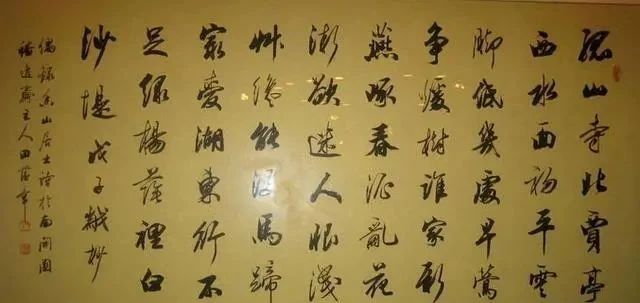 孤山寺北賈亭
西水面初平雲
脚低幾處早鶯
爭暖樹誰家新
燕啄春泥亂花
漸欲迷人眼淺
艸纔能没馬蹄
冣愛湖東行不
足綠楊蔭裡白
沙堤戊子秋杪
偶録香山居士詩於南開園
齋主人田蘊章